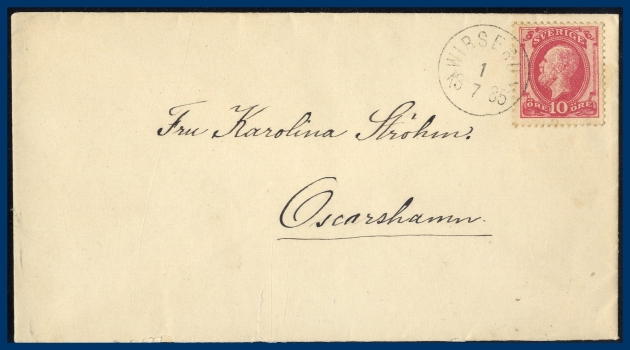 WIRSERUM
1
7 85
SVERIGE
ÖRE 10 ÖRE
Fru Karolina Ströhm.
Oscarshamn.